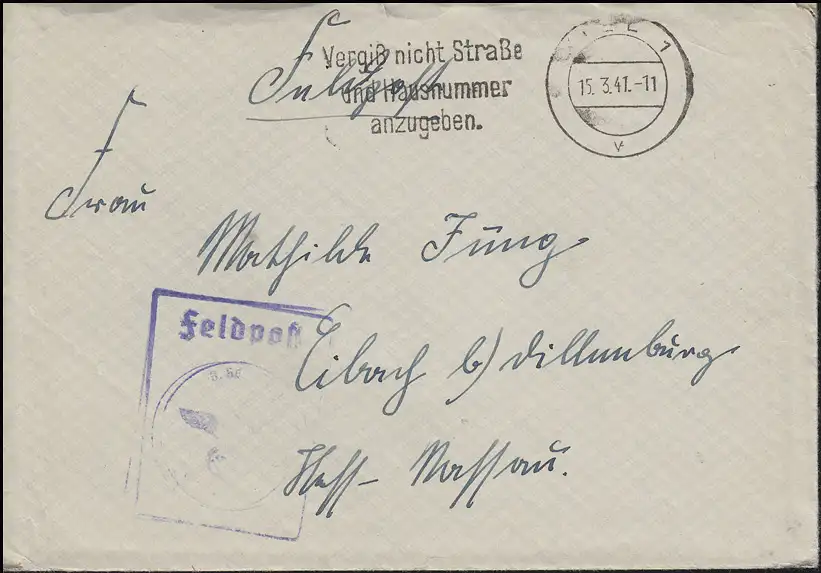 Feldpost
Vergiß nicht Straße
und Hausnummer
anzugeben.
KIEL 1
15.3.41.-11
v
Frau
Mathilde Jung
Feldpost
Eibach b/ Dillenburg
Hess-Nassau.